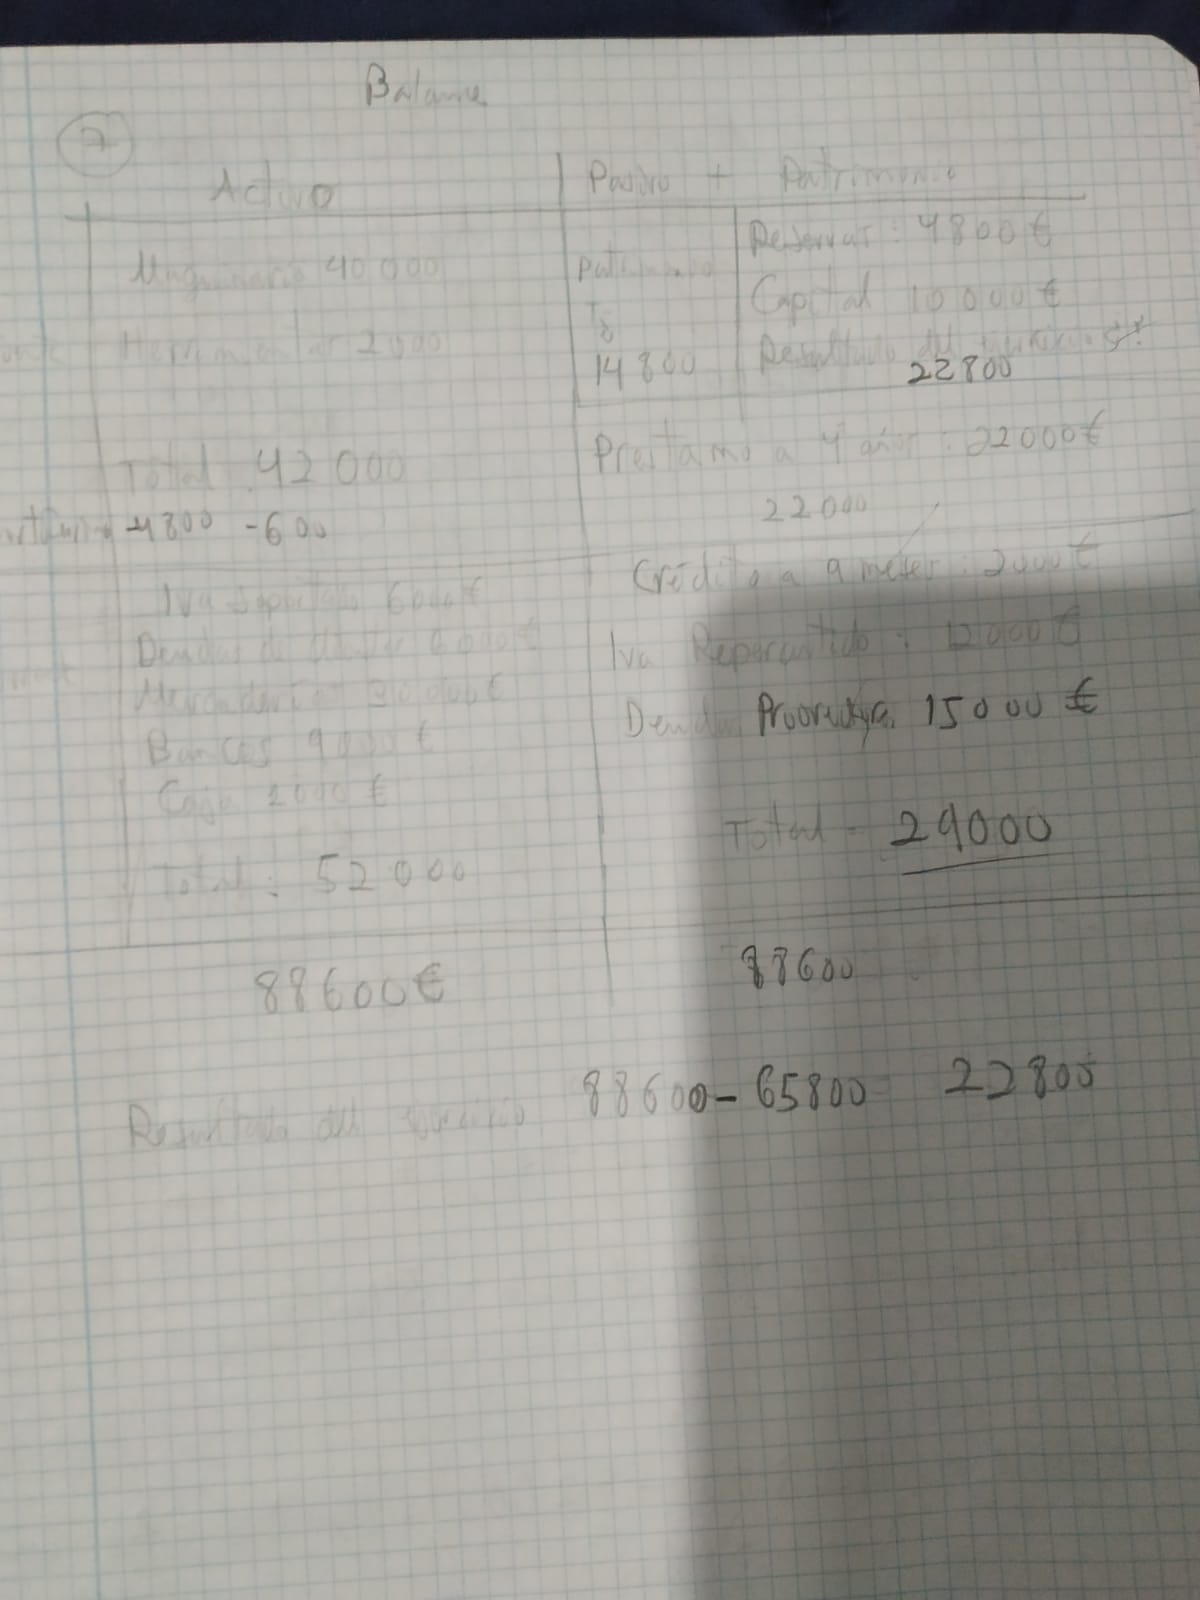 Balance
7
Activo
Pasivo + Patrimonio
Maquinaria 40 000
Herramientas 2000
Total 42 000
-4800 -600
Iva Soportado 6000€
Deudas de
Mercaderías 30 000€
Bancos 9000€
Caja 2000€
Total: 52 000
88600€
Patrimonio
14 800
Reservas: 4800€
Capital 10 000€
Resultado del
22800
Prestamo a 4 años: 22000€
22000
Crédito a 9 meses: 2000€
Iva Repercutido: 12000€
15000€
Total - 29000
88600
Resultado del ejercicio 88600 - 65800 22800